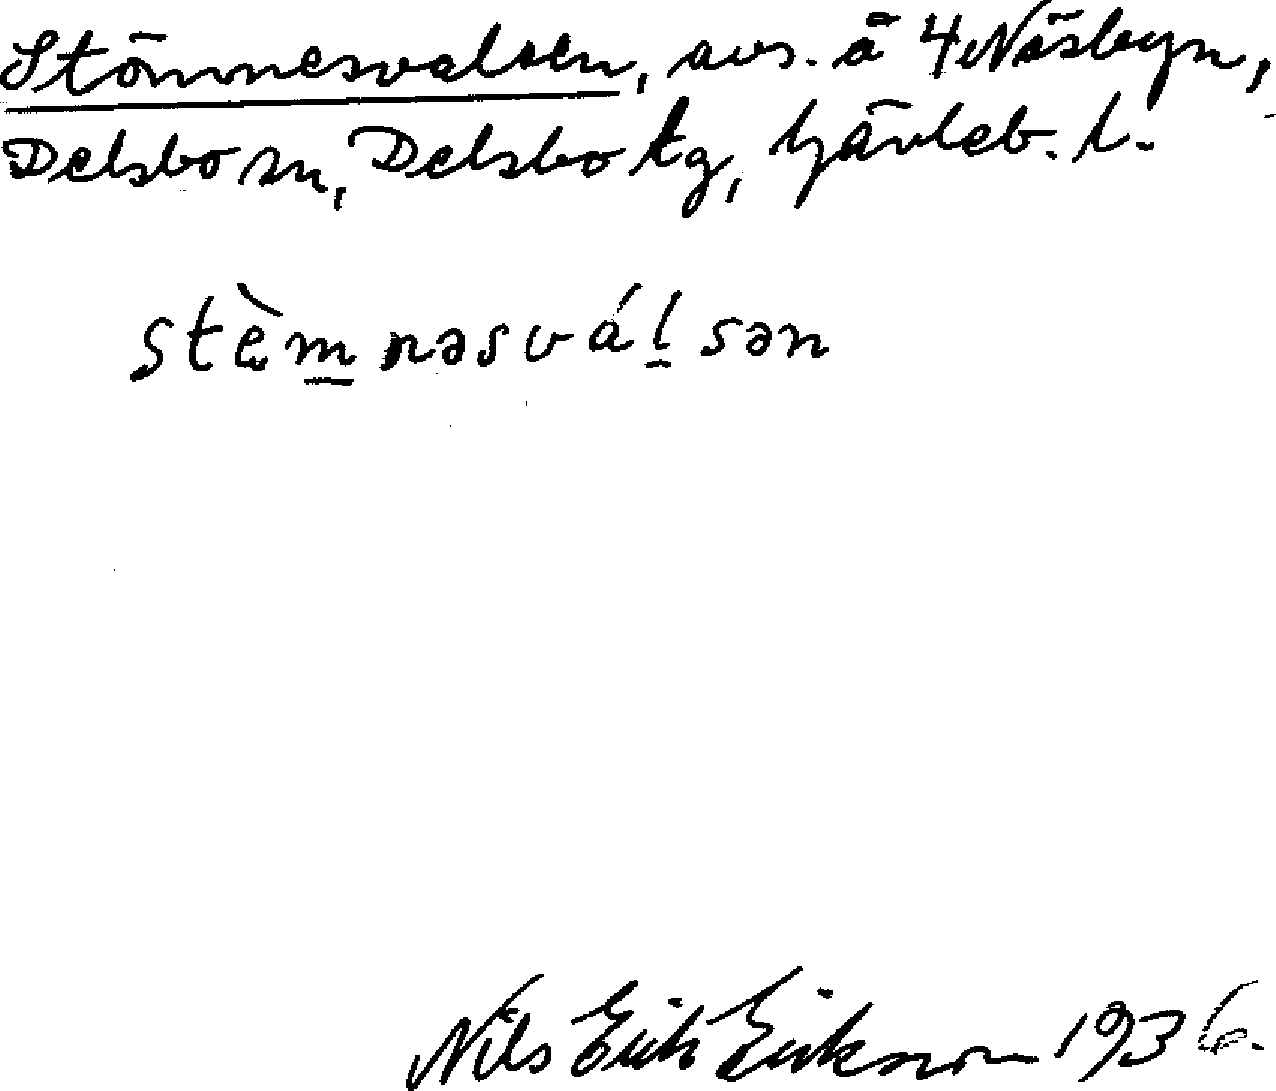 Stömnesvalsen, avs. å 4 Näsbyn,
Delsbo sn, Delsbo tg, Gävleb. l.
stèmnəsválsən
Nils Erik Erikson 1936.